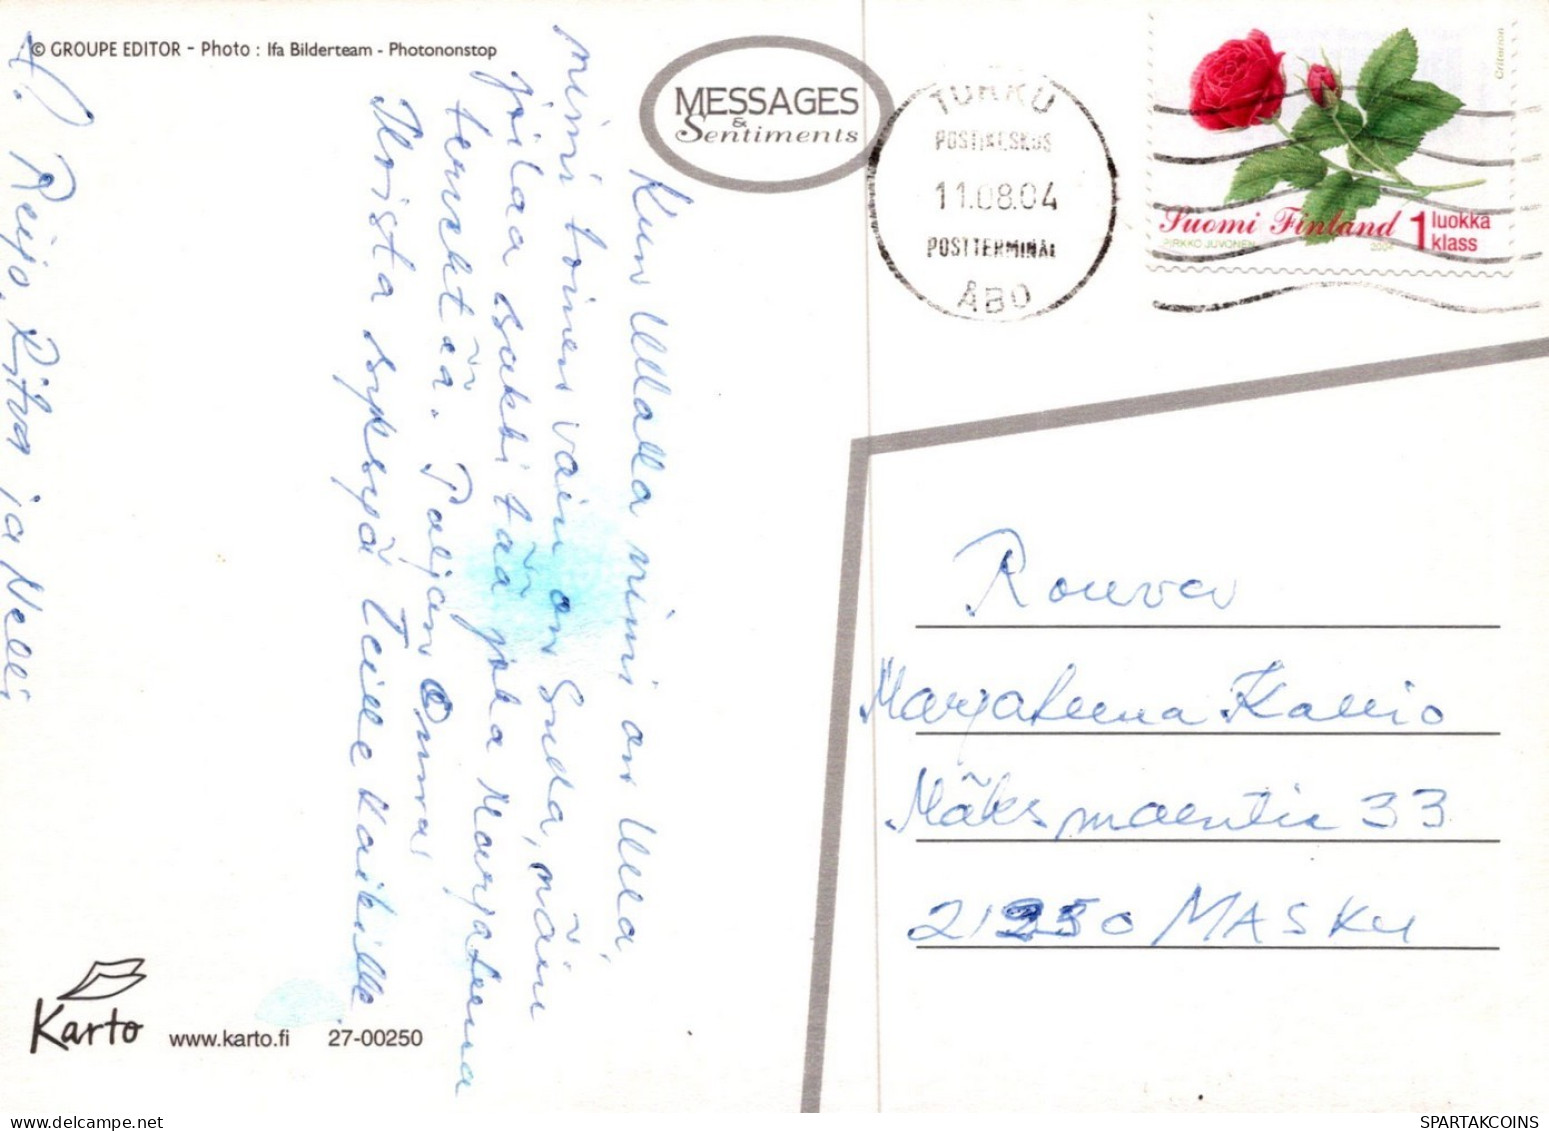 © GROUPE EDITOR - Photo : Ifa Bilderteam - Photononstop
MESSAGES
&
Sentiments
TURKU
POSTIKESKUS
11.08.04
POSTTERMINAL
ÅBO
Criterion
Suomi Finland 1 luokka
klass
PIRKKO JUVONEN 2004
Kun Ullalla nimi on Ulla,
nimi toinen vain on Sulla, näin
jo isakki tää joka Marjaleena
Paljon Onnea!
Iloista syksyä Teille kaikille
T. Reijo, Ritva ja Nelli
Rouva
Marjaleena Kallio
33
21250 MASKU
Karto www.karto.fi 27-00250
SPARTAKCOINS